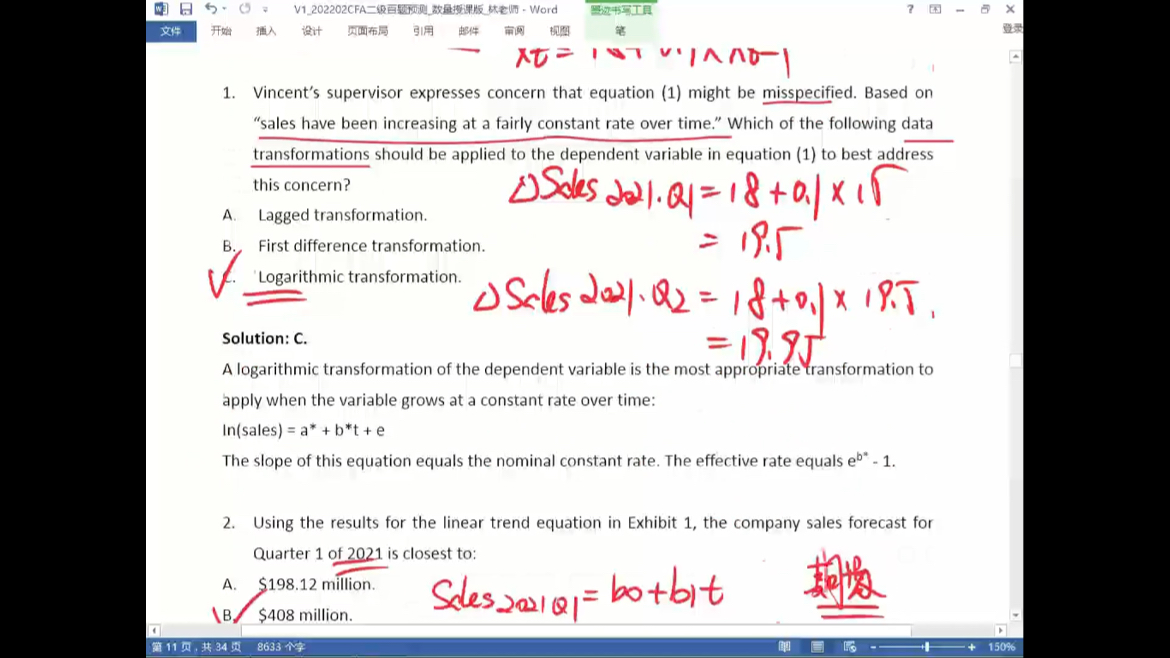 V1_202202CFA二级百题预测_数量授课版_林老师 - Word
墨迹书写工具
文件 开始 插入 设计 页面布局 引用 邮件 审阅 视图 笔 登录
1. Vincent's supervisor expresses concern that equation (1) might be misspecified. Based on
“sales have been increasing at a fairly constant rate over time.” Which of the following data
transformations should be applied to the dependent variable in equation (1) to best address
this concern?
△Sales 2021.Q1 = 18 + 0.1 × 15
A. Lagged transformation.
= 19.5
B. First difference transformation.
C. Logarithmic transformation.
△Sales 2021.Q2 = 18 + 0.1 × 19.5
= 19.95
Solution: C.
A logarithmic transformation of the dependent variable is the most appropriate transformation to
apply when the variable grows at a constant rate over time:
ln(sales) = a* + b*t + e
The slope of this equation equals the nominal constant rate. The effective rate equals e^b* - 1.
2. Using the results for the linear trend equation in Exhibit 1, the company sales forecast for
Quarter 1 of 2021 is closest to:
A. $198.12 million.
Sales 2021 Q1 = b0 + b1 t
B. $408 million.
第 11 页，共 34 页 8633 个字 150%